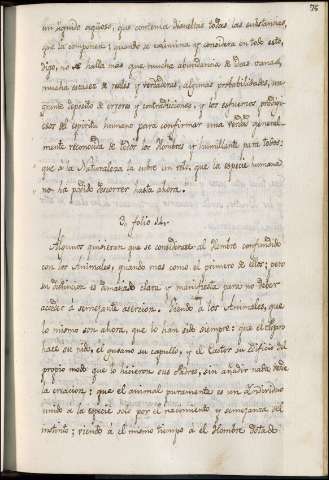 75
un líquido aqüoso, que contenia disueltas todas las substancias,
que la componen: quando se exâmina y considera en todo esto,
digo, no se halla mas que mucha abundancia de ideas vanas,
mucha escasez de reales y verdaderas, algunas probabilidades, un
grande deposito de errores y contradiciones, y los esfuerzos prodigi-
osos del espiritu humano para confirmar una verdad general-
mente reconocida de todos los Hombres y humillante para todos:
que á la Naturaleza la cubre un velo, que la especie humana
no ha podido descorrer hasta ahora.
3. folio 14.
Algunos quisieran que se considerase al Hombre confundido
con los Animales, quando mas como el primero de ellos; pero
su distincion es demasiado clara y manifiesta para no deber
acceder á semejante asercion. Viendo á los Animales, que
lo mismo son ahora, que lo han sido siempre: que el Pajaro
hace su nido, el gusano su capullo, y el Castor su Edificio del
propio modo que lo hicieron sus Padres, sin añadir nada desde
la creacion; que el animal puramente es un Individuo
unido á la especie solo por el nacimiento y semejanza del
instinto; viendo á el mismo tiempo á el Hombre dotado